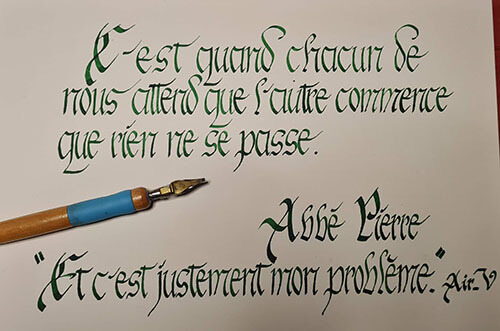 C-est quand chacun de
nous attend que l'autre commence
que rien ne se passe.
Abbé Pierre
"Et c-est justement mon problème." Air-V